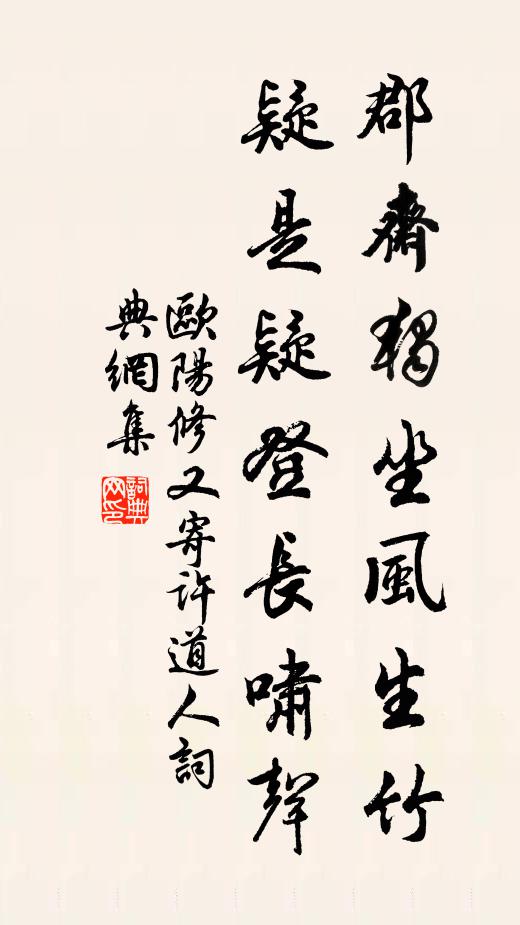 郡齋獨坐風生竹
疑是疑登長嘯聲
歐陽修又寄許道人詞
典網集
詞典
网印